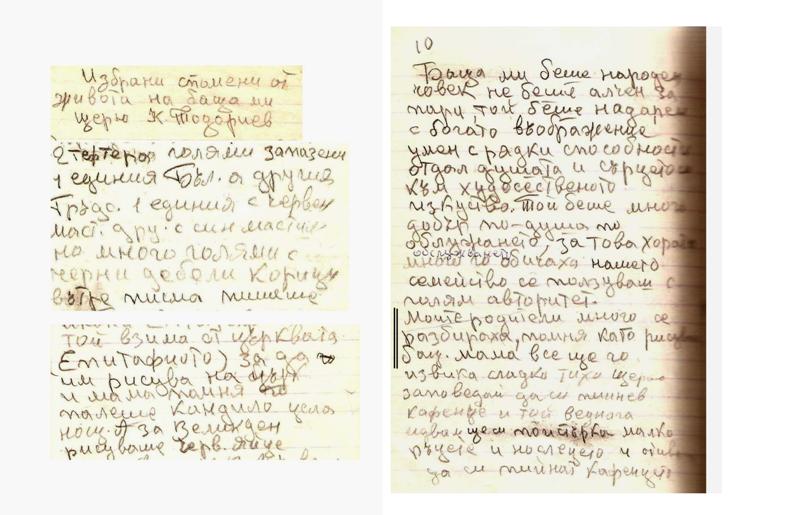 Избрани спомени от
живота на баща ми
щерю К. Тодориев
2 тефтера голями запазени
1 единия Бъл. а другия
Гръдс. 1 единия с червен
маст. дру. с син мастил
но много голями с
черни дебели корици
вътре писма пишеше
той взима от църквата
Епитафното) за да
им рисува на
и мама помня
палеше кандило цела
нощ. А за Великден
рисуваше черв. яйце
10
Баща ми беше народен
човек не беше алчен за
пари, той беше надарен
с богато въображение
умен с рядки способности
отдал душата и сърцето
към художественото
изкуство. Той беше много
добър по-душа по
облужването, за това хората
обслужването
много го обичаха нашето
семейство се ползуваш с
голям авторитет.
Моите родители много се
разбираха, помня като рисува
бащ. мама все ще го
извика сладко тихо щерьо
заповедай да си пийнев
кафенце и той веднага
идва щем
малко
ръцете и носището и
да си пийнат кафенцето